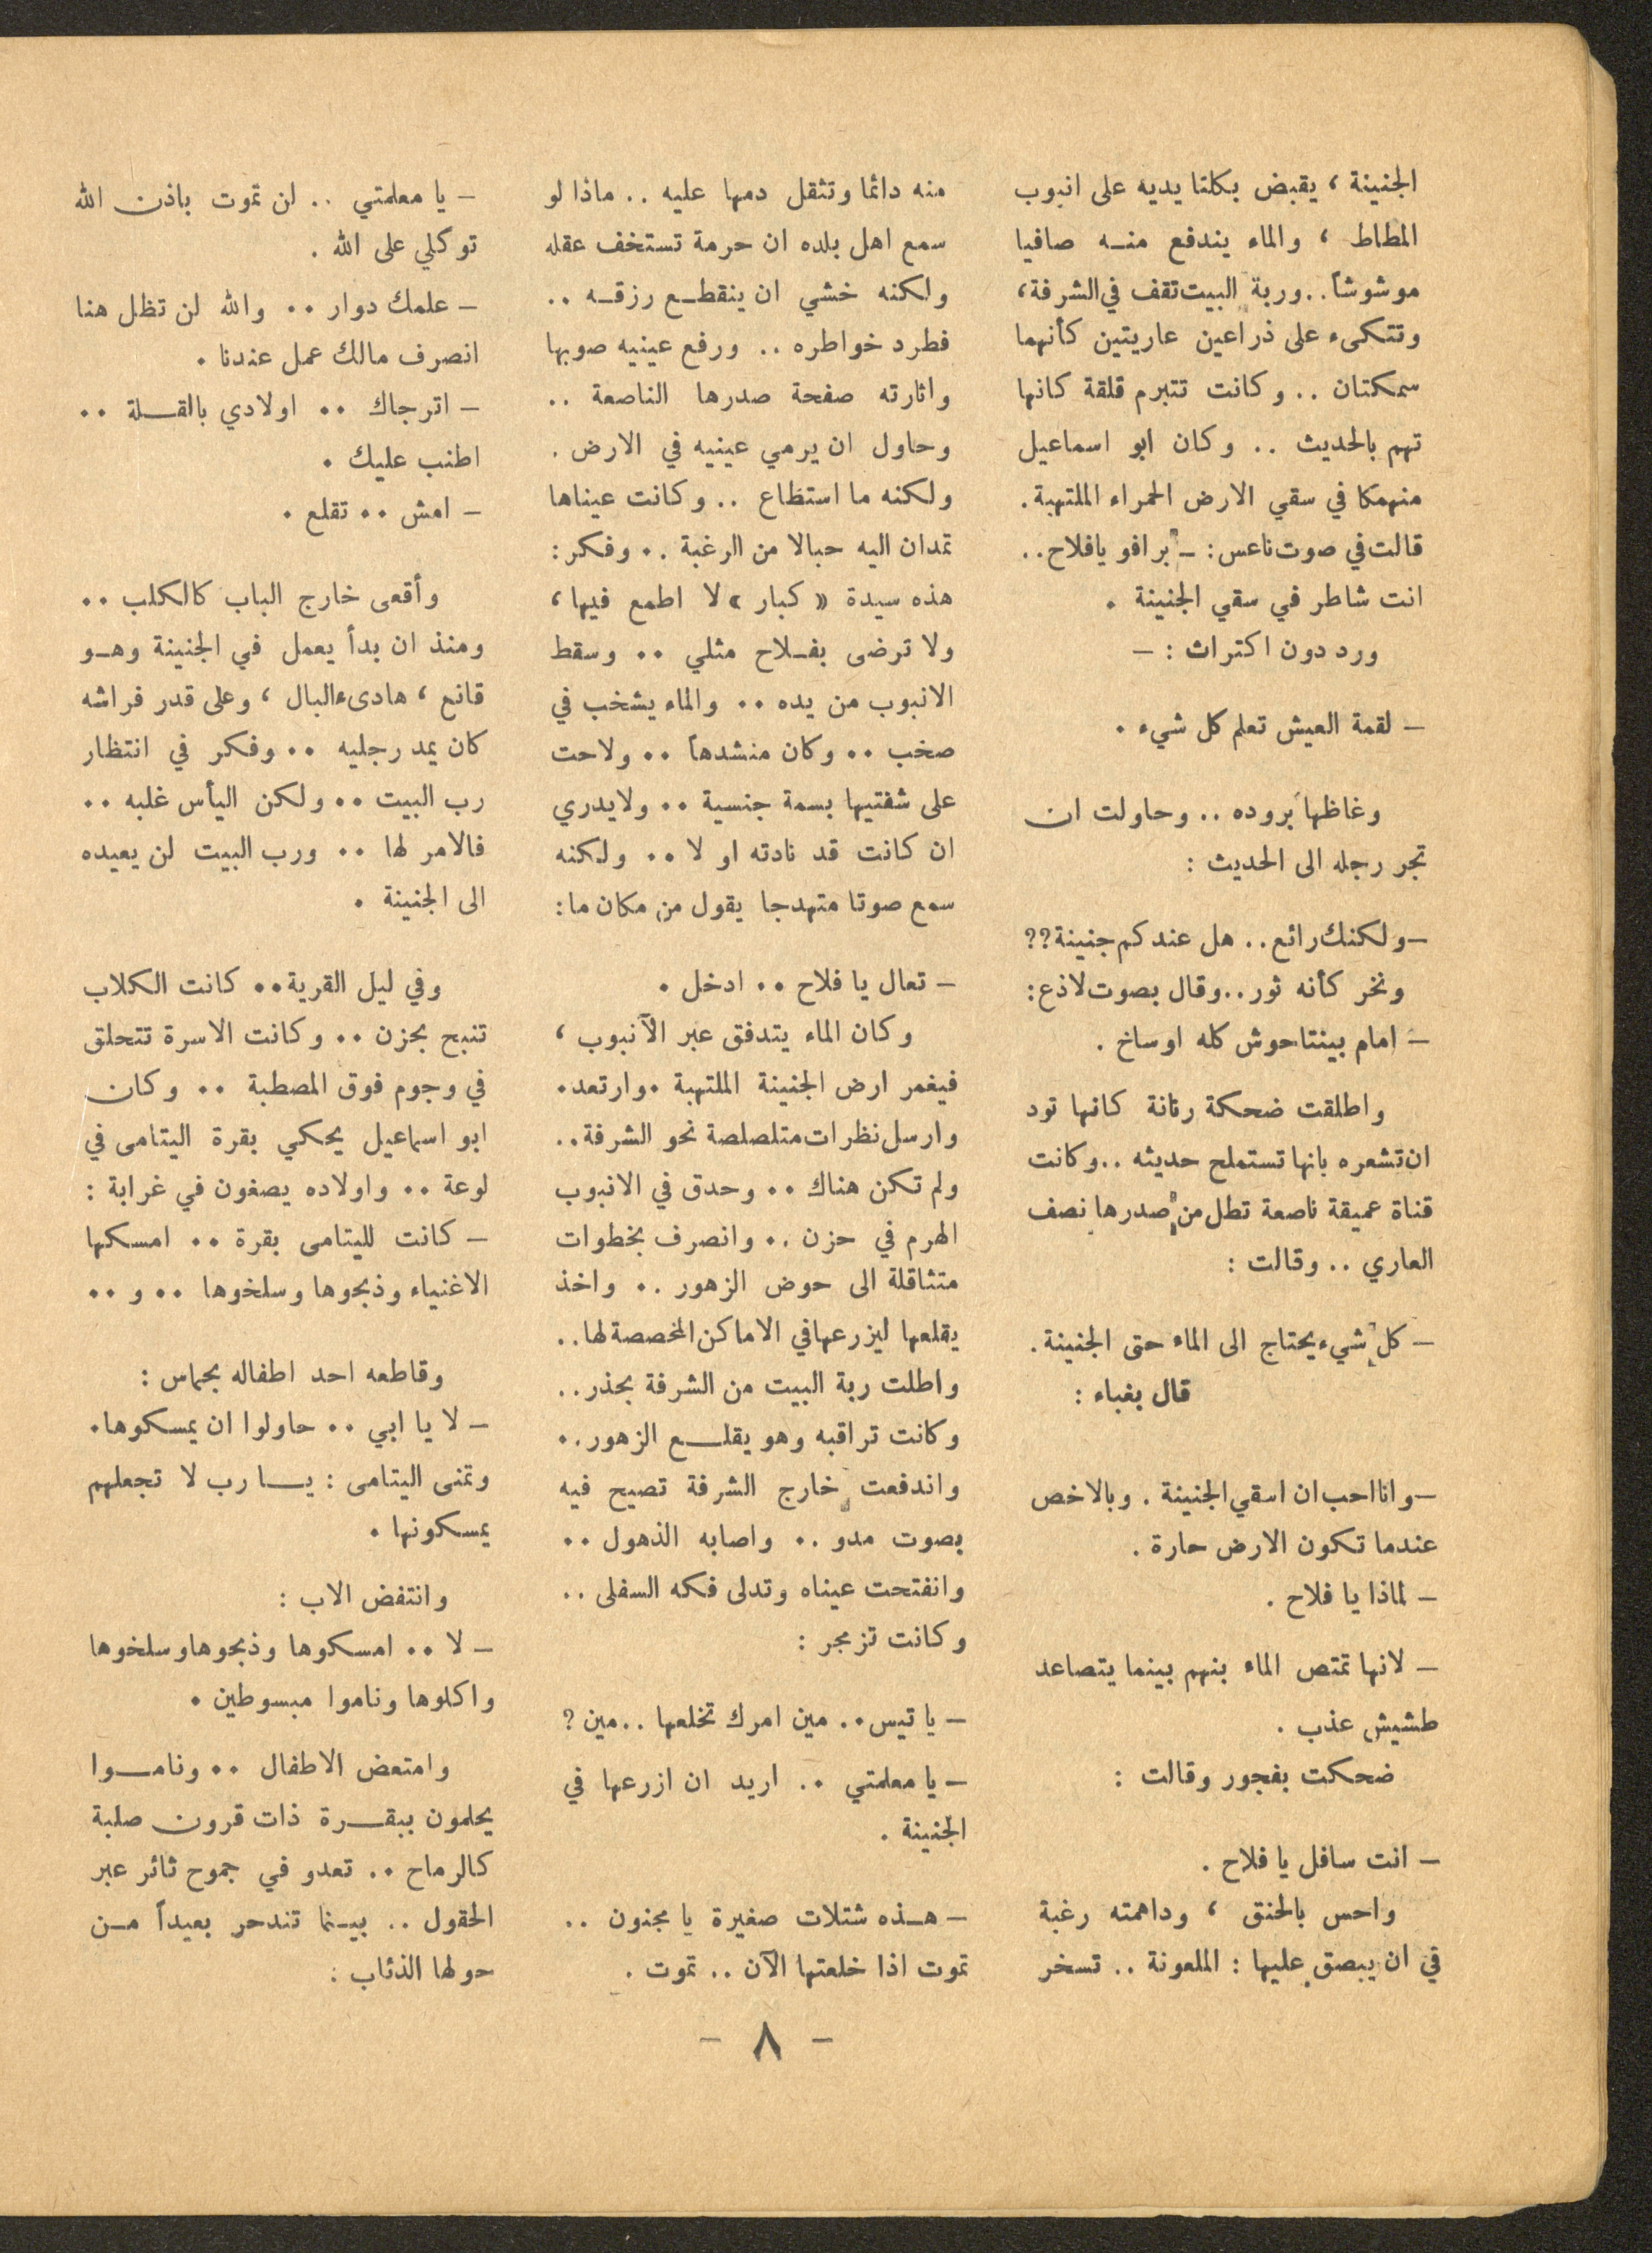 الجنينة ، يقبض بكلتا يديه على انبوب
المطاط ، والماء يندفع منه صافيا
موشوشاً .. وربة البيت تقف في الشرفة ،
وتتكىء على ذراعين عاريتين كأنهما
سمكتان .. وكانت تتبرم قلقة كانها
تهم بالحديث .. وكان ابو اسماعيل
منهمكا في سقي الارض الحمراء الملتهبة .
قالت في صوت ناعس : – برافو يافلاح ..
انت شاطر في سقي الجنينة .
ورد دون اكتراث : –
– لقمة العيش تعلم كل شيء .
وغاظها بروده .. وحاولت ان
تجر رجله الى الحديث :
– ولكنك رائع .. هل عندكم جنينة ??
ونخر كأنه ثور .. وقال بصوت لاذع :
– امام بيتنا حوش كله اوساخ .
واطلقت ضحكة رنانة كانها تود
ان تشعره بانها تستملح حديثه .. وكانت
قناة عميقة ناصعة تطل من صدرها نصف
العاري .. وقالت :
– كل شيء يحتاج الى الماء حتى الجنينة .
قال بغباء :
– وانا احب ان اسقي الجنينة . وبالاخص
عندما تكون الارض حارة .
– لماذا يا فلاح .
– لانها تمتص الماء بنهم بينما يتصاعد
طشيش عذب .
ضحكت بفجور وقالت :
– انت سافل يا فلاح .
واحس بالحنق ، وداهمته رغبة
في ان يبصق عليها : الملعونة .. تسخر
منه دائما وتثقل دمها عليه .. ماذا لو
سمع اهل بلده ان حرمة تستخف عقله
ولكنه خشي ان ينقطع رزقه ..
فطرد خواطره .. ورفع عينيه صوبها
واثارته صفحة صدرها الناصعة ..
وحاول ان يرمي عينيه في الارض .
ولكنه ما استطاع .. وكانت عيناها
تمدان اليه حبالا من الرغبة .. وفكر :
هذه سيدة « كبار » لا اطمع فيها ،
ولا ترضى بفلاح مثلي .. وسقط
الانبوب من يده .. والماء يشخب في
صخب .. وكان منشدهاً .. ولاحت
على شفتيها بسمة جنسية .. ولا يدري
ان كانت قد نادته او لا .. ولكنه
سمع صوتا متهدجا يقول من مكان ما :
– تعال يا فلاح .. ادخل .
وكان الماء يتدفق عبر الآنبوب ،
فيغمر ارض الجنينة الملتهبة . وارتعد .
وارسل نظرات متلصلصة نحو الشرفة ..
ولم تكن هناك .. وحدق في الانبوب
الهرم في حزن .. وانصرف بخطوات
متثاقلة الى حوض الزهور .. واخذ
يقلعها ليزرعها في الاماكن المخصصة لها ..
واطلت ربة البيت من الشرفة بحذر ..
وكانت تراقبه وهو يقلع الزهور ..
واندفعت خارج الشرفة تصيح فيه
بصوت مدو .. واصابه الذهول ..
وانفتحت عيناه وتدلى فكه السفلى ..
وكانت تزمجر :
– يا تيس .. مين امرك تخلعها .. مين ?
– يا معلمتي .. اريد ان ازرعها في
الجنينة .
– هذه شتلات صغيرة يا مجنون ..
تموت اذا خلعتها الآن .. تموت .
– يا معلمتي .. لن تموت باذن الله
توكلي على الله .
– علمك دوار .. والله لن تظل هنا
انصرف مالك عمل عندنا .
– اترجاك .. اولادي بالقلة ..
اطنب عليك .
– امش .. تقلع .
وأقعى خارج الباب كالكلب ..
ومنذ ان بدأ يعمل في الجنينة وهو
قانع ، هادىء البال ، وعلى قدر فراشه
كان يمد رجليه .. وفكر في انتظار
رب البيت .. ولكن اليأس غلبه ..
فالامر لها .. ورب البيت لن يعيده
الى الجنينة .
وفي ليل القرية .. كانت الكلاب
تنبح بحزن .. وكانت الاسرة تتحلق
في وجوم فوق المصطبة .. وكان
ابو اسماعيل يحكي بقرة اليتامى في
لوعة .. واولاده يصغون في غرابة :
– كانت لليتامى بقرة .. امسكها
الاغنياء وذبحوها وسلخوها .. و ..
وقاطعه احد اطفاله بحماس :
– لا يا ابي .. حاولوا ان يمسكوها .
وتمنى اليتامى : يا رب لا تجعلهم
يمسكونها .
وانتفض الاب :
– لا .. امسكوها وذبحوها وسلخوها
واكلوها وناموا مبسوطين .
وامتعض الاطفال .. وناموا
يحلمون ببقرة ذات قرون صلبة
كالرماح .. تعدو في جموح ثائر عبر
الحقول .. بينما تندحر بعيداً من
حولها الذئاب :
– ٨ –